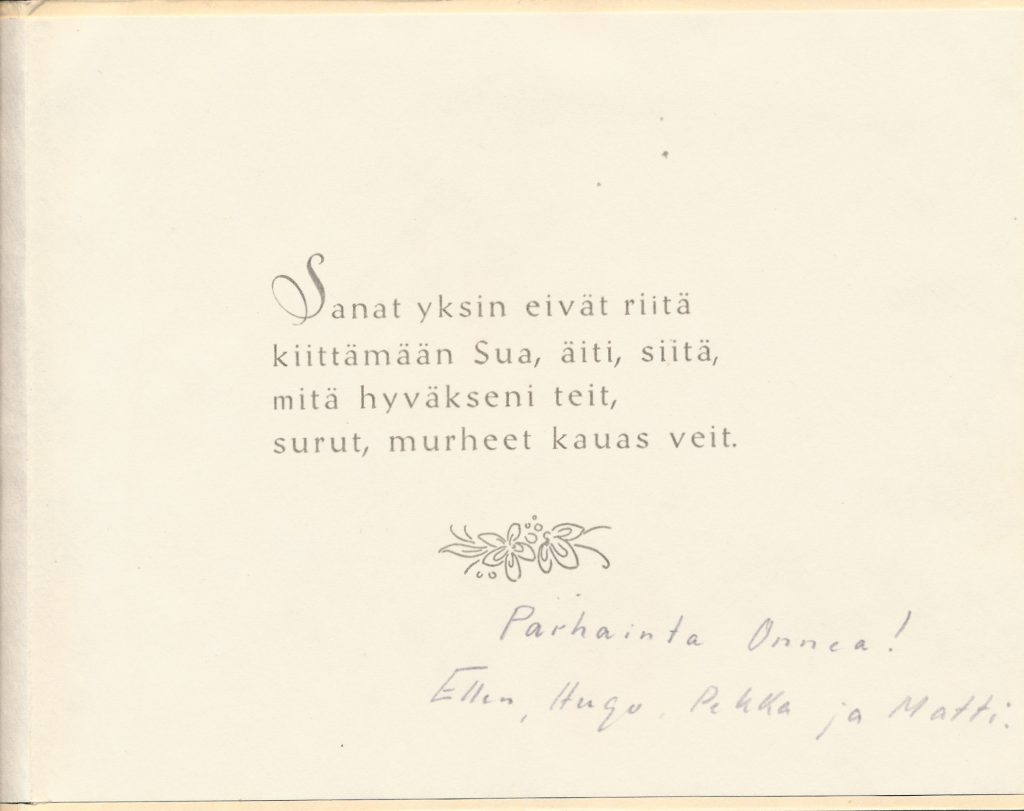 Sanat yksin eivät riitä
kiittämään Sua, äiti, siitä,
mitä hyväkseni teit,
surut, murheet kauas veit.
Parhainta Onnea!
Ellen, Hugo, Pekka ja Matti.